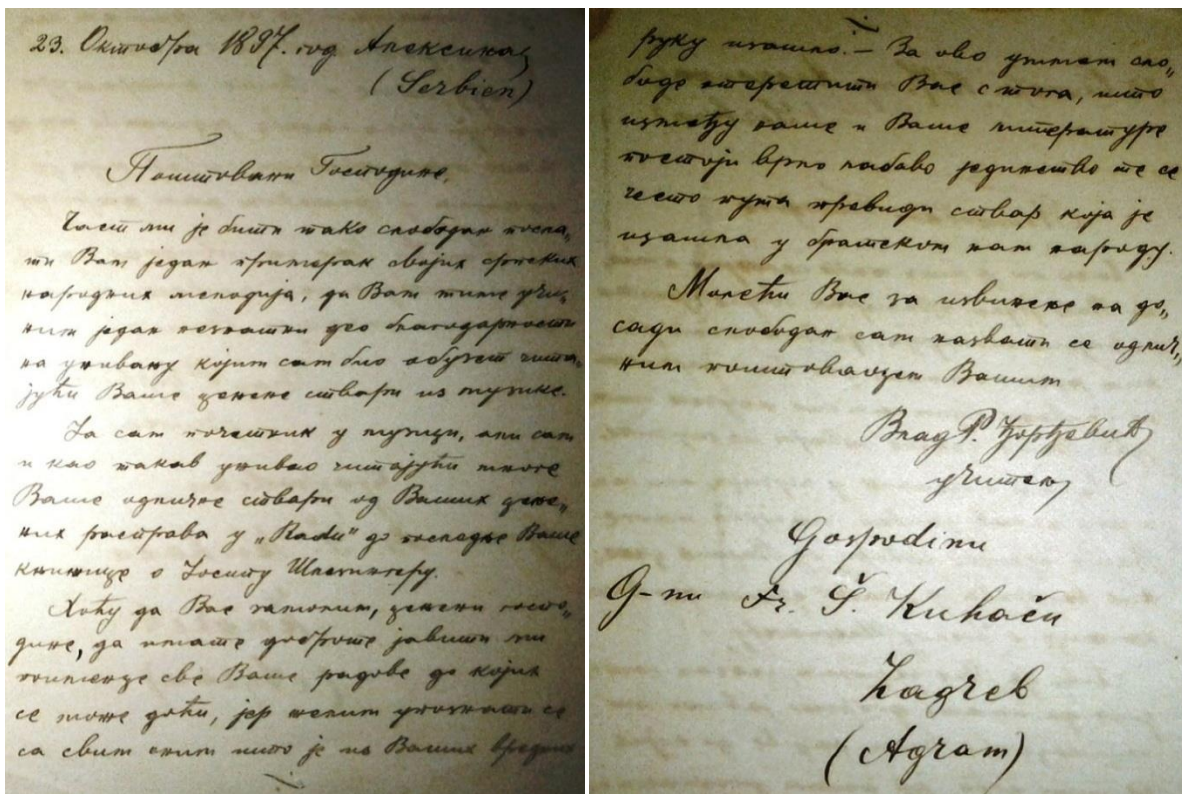 23. Октобра 1897. год. Алексинац
(Serbien)
Поштовани Господине,
Част ми је бити тако слободан посла„
ти Вам један примерак својих српских
народних мелодија, да Вам тиме учи„
ним један незнатни део благодарности
на уживању којим сам био обузет чита„
јући Ваше цењене ствари из музике.
Ја сам почетник у музици, али сам
и као такав уживао читајући многе
Ваше одличне ствари од Ваших цење„
них расправа у „Radu“ до последње Ваше
књижице о Јосипу Шлезингеру.
Хоћу да Вас замолим, цењени госпо„
дине, да имате доброте јавити ми
поименце све Ваше радове до којих
се може доћи, јер желим упознати се
са свим оним што је из Ваших вредних
руку изашло. — За ово узимам сло„
боде отеретити Вас с тога, што
између наше и Ваше литературе
постоји врло лабаво јединство те се
често пута превиди ствар која је
изашла у братском нам народу.
Молећи Вас за извињење на до„
сади слободан сам назвати се одлич„
ним поштоваоцем Вашим
Влад. Р. Ђорђевић
учитељ
Gospodinu
G-nu Fr. Š. Kuhaču
Zagreb
(Agram)